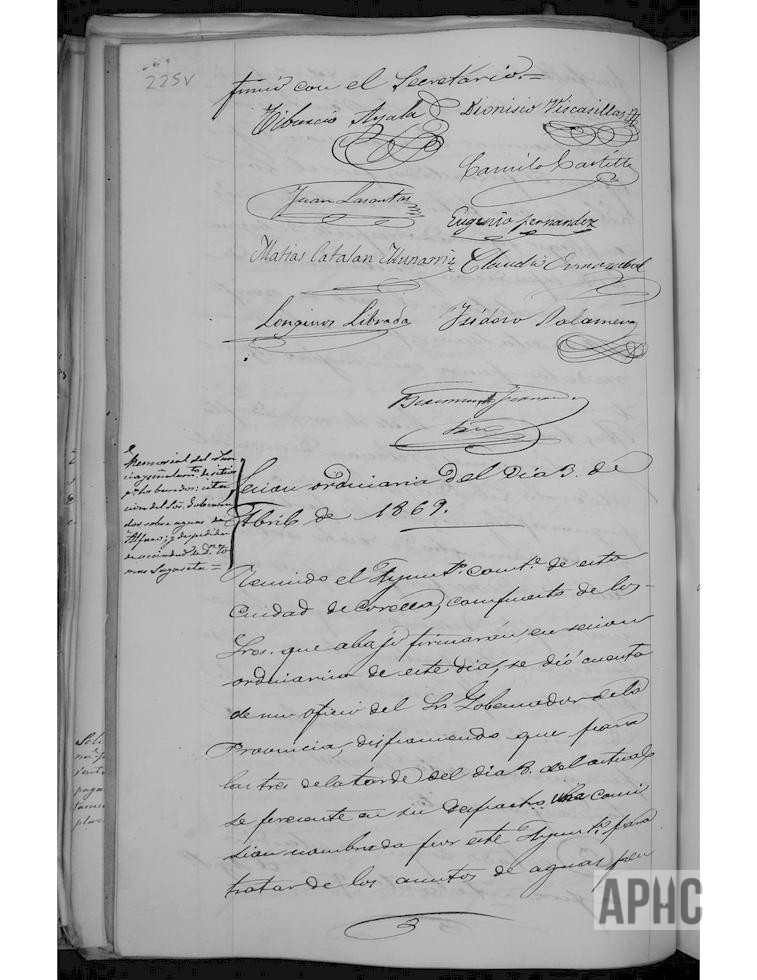 225v
firmó con el Secretario.=
Tiburcio Ayala Dionisio Viscasillas
Camilo Castilla
Juan Lasantas
Eugenio Fernandez
Matias Catalan Munarriz Claudio
Longinos Librada Isidoro Salamero
Memorial del
ñalamto de sitios
pa los bandos; cita
cion del Sr. Goberna
dor sobre aguas de
Alfaro; y despedida
de vecindad de Dn To
mas Sagaseta=
Sesion ordinaria del Dia 3. de
Abril de 1869.
Reunido el Ayuntto. contl. de esta
Ciudad de Corella, compuesto de los
Sres. que abajo firmarán, en sesion
ordinaria de este dia, se dió cuenta
de un oficio del Sr Gobernador de la
Provincia, disponiendo que para
las tres de la tarde del dia 8. del actual
se presente en su despacho una comi
sion nombrada por este Ayuntto. para
tratar de los asuntos de aguas pen
APHC